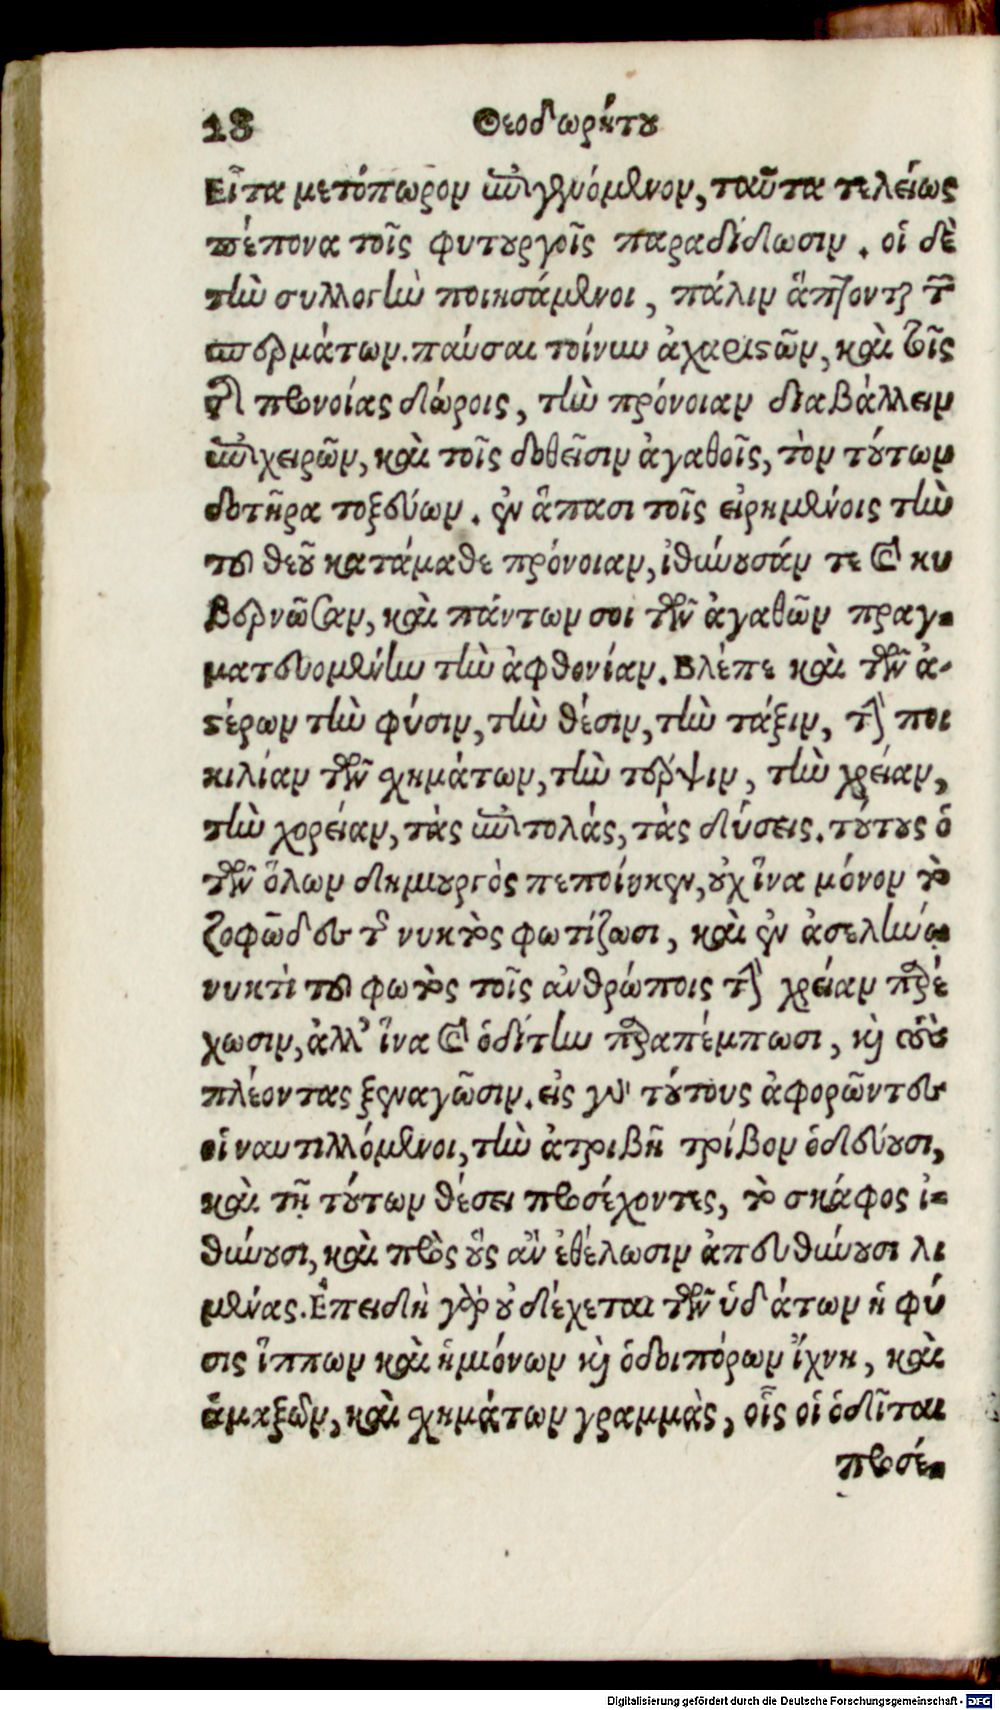 18 Θεοδωρήτου
Εἶτα μετόπωρον ἐπιγενόμενον, ταῦτα τελείως
πέπονα τοῖς φυτουργοῖς παραδίδωσιν. οἱ δὲ
τὴν συλλογὴν ποιησάμενοι, πάλιν ἅπτονται τῶν
σπερμάτων. παῦσαι τοίνυν ἀχαριστῶν, καὶ τοῖς
τῆς προνοίας δώροις, τὴν πρόνοιαν διαβάλλειν
ἐπιχειρῶν, καὶ τοῖς δοθεῖσιν ἀγαθοῖς, τὸν τούτων
δοτῆρα τοξεύων. ἐν ἅπασι τοῖς εἰρημένοις τὴν
τοῦ θεοῦ κατάμαθε πρόνοιαν, ἰθύνουσάν τε καὶ κυ
βερνῶσαν, καὶ πάντων σοι τῶν ἀγαθῶν πραγ-
ματευομένην τὴν ἀφθονίαν. Βλέπε καὶ τῶν ἀ-
στέρων τὴν φύσιν, τὴν θέσιν, τὴν τάξιν, τὴν ποι
κιλίαν τῶν σχημάτων, τὴν τέρψιν, τὴν χρείαν,
τὴν χορείαν, τὰς ἐπιτολάς, τὰς δύσεις. τούτους ὁ
τῶν ὅλων δημιουργὸς πεποίηκεν, οὐχ ἵνα μόνον τὸ
ζοφῶδες τῆς νυκτὸς φωτίζωσι, καὶ ἐν ἀσελήνῳ
νυκτὶ τοῦ φωτὸς τοῖς ἀνθρώποις τὴν χρείαν παρέ
χωσιν, ἀλλ' ἵνα καὶ ὁδίτην παραπέμπωσι, καὶ τοὺς
πλέοντας ξεναγῶσιν. εἰς γὰρ τούτους ἀφορῶντες
οἱ ναυτιλλόμενοι, τὴν ἀτριβῆ τρίβον ὁδεύουσι,
καὶ τῇ τούτων θέσει προσέχοντες, τὸ σκάφος ἰ-
θύνουσι, καὶ πρὸς οὓς ἂν ἐθέλωσιν ἀπευθύνουσι λι
μένας. Ἐπειδὴ γὰρ οὐ δέχεται τῶν ὑδάτων ἡ φύ
σις ἵππων καὶ ἡμιόνων καὶ ὁδοιπόρων ἴχνη, καὶ
ἁμαξῶν, καὶ σχημάτων γραμμὰς, οἷς οἱ ὁδῖται
προσέ-
Digitalisierung gefördert durch die Deutsche Forschungsgemeinschaft - DFG